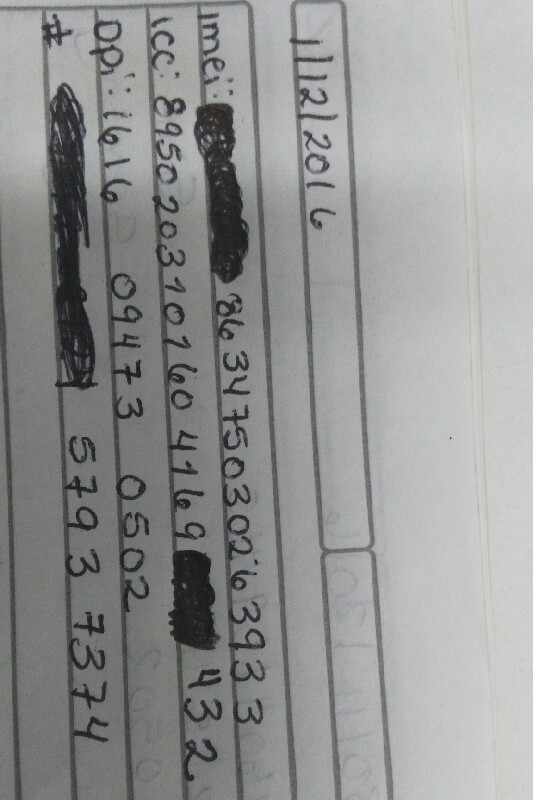 1/12/2016
imei: 863475030263933
icc: 8950203101604169 432
Dpi: 1616 09473 0502
# 5793 7374